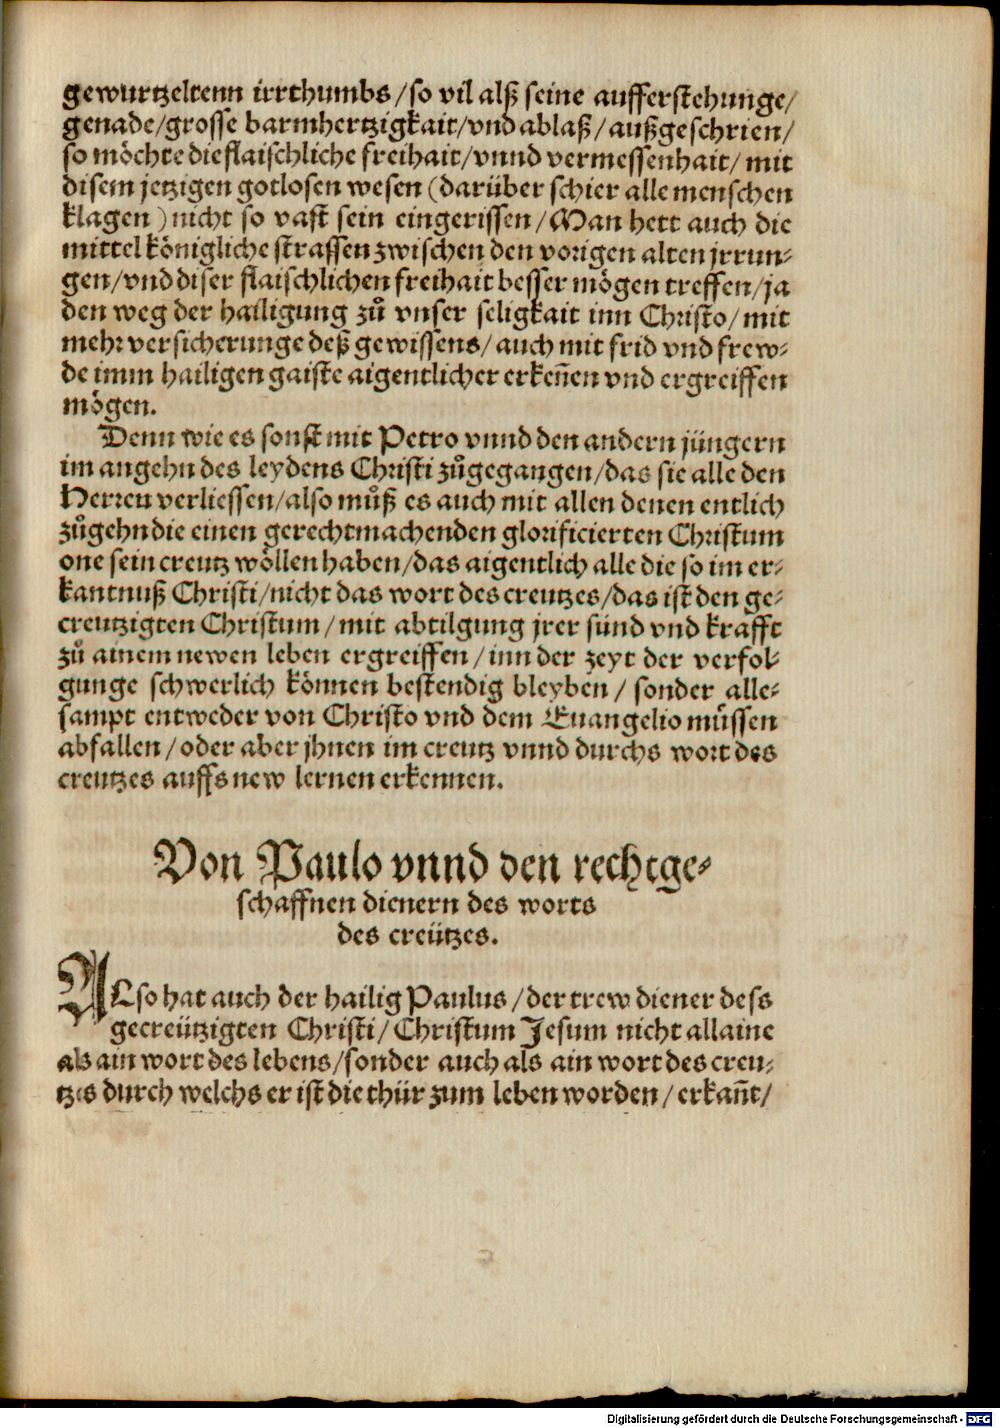 gewurtzeltenn irrthumbs/so vil alß seine aufferstehunge/
genade/grosse barmhertzigkait/vnd ablaß/außgeschrien/
so möchte die flaischliche freihait/vnnd vermessenhait/ mit
disem jetzigen gotlosen wesen (darüber schier alle menschen
klagen) nicht so vast sein eingerissen/Man hett auch die
mittel königliche strassen zwischen den vorigen alten jrrun⸗
gen/vnd diser flaischlichen freihait besser mögen treffen/ja
den weg der hailigung zů vnser seligkait inn Christo/mit
mehr versicherunge deß gewissens/auch mit frid vnd frew⸗
de imm hailigen gaiste aigentlicher erkeñen vnd ergreiffen
mögen.
Denn wie es sonst mit Petro vnnd den andern jüngern
im angehn des leydens Christi zůgegangen/das sie alle den
Herren verliessen/also můß es auch mit allen denen entlich
zůgehn die einen gerechtmachenden glorificierten Christum
one sein creutz wöllen haben/das aigentlich alle die so im er⸗
kantnuß Christi/nicht das wort des creutzes/das ist den ge⸗
creutzigten Christum/mit abtilgung jrer sünd vnd krafft
zů ainem newen leben ergreiffen/inn der zeyt der verfol⸗
gunge schwerlich können bestendig bleyben/ sonder alle⸗
sampt entweder von Christo vnd dem Euangelio müssen
abfallen/oder aber jhnen im creutz vnnd durchs wort des
creutzes auffs new lernen erkennen.
Von Paulo vnnd den rechtge⸗
schaffnen dienern des worts
des creützes.
ALso hat auch der hailig Paulus/der trew diener dess
gecreützigten Christi/Christum Jesum nicht allaine
als ain wort des lebens/sonder auch als ain wort des creu⸗
tzes durch welchs er ist die thür zum leben worden/erkañt/
Digitalisierung gefördert durch die Deutsche Forschungsgemeinschaft - DFG